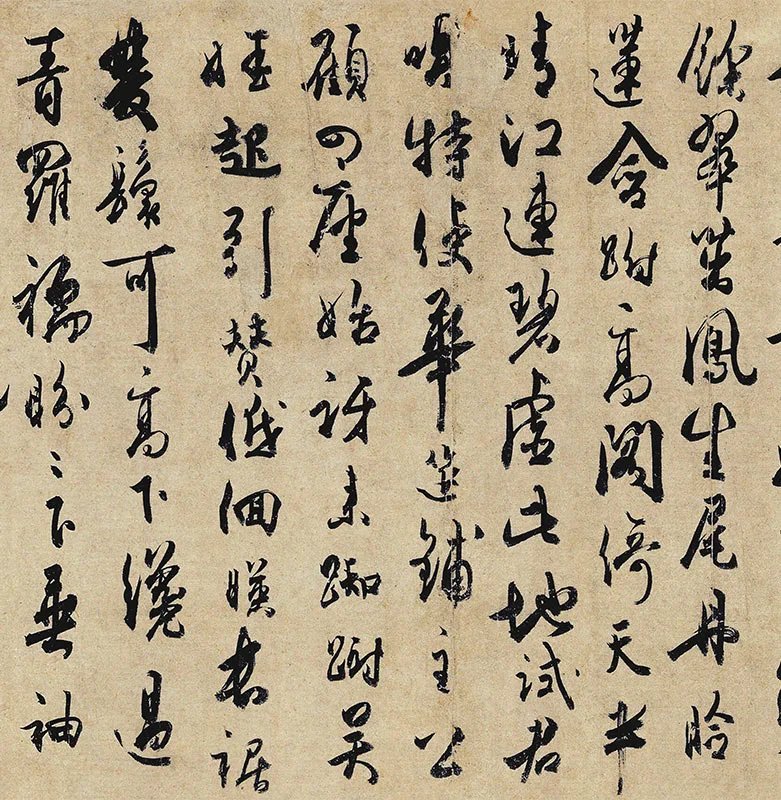 餘翠茁鳳生尾丹臉
蓮含跗高閣倚天半
晴江連碧虛此地試君
唱特使華筵鋪主公
顧四座始訝來踟躕吳
娃起引贊低佪暎長裾
雙鬟可高下纔過
青羅襦盼〻下垂袖